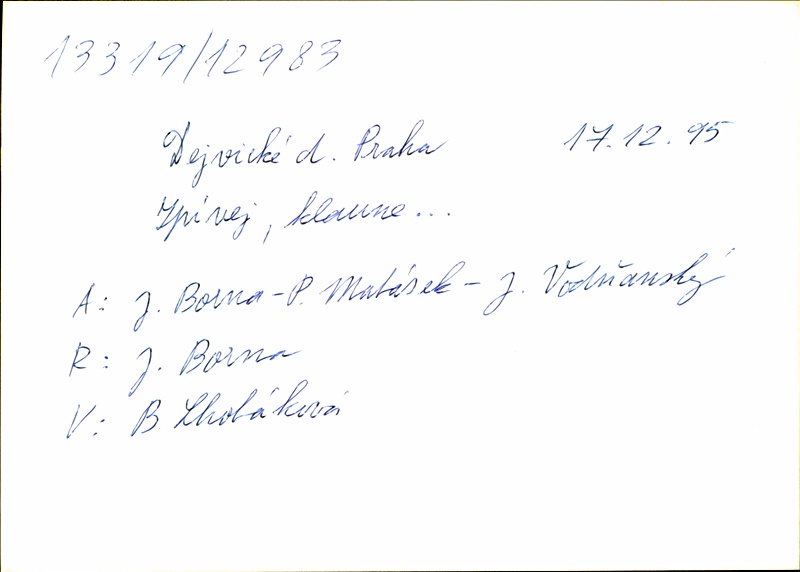 13319/12983
Dejvické d. Praha 17.12.95
Zpívej, klaune...
A: J. Borna - P. Matásek - J. Vodňanský
R: J. Borna
V: B Lhotáková